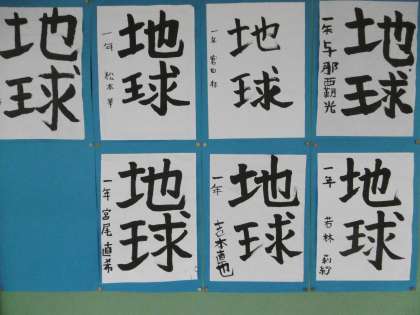 地球
地球
一年 松本
地球
一年
地球
一年 与那覇光
地球
一年 宮尾直希
地球
一年 吉本直也
地球
一年 若林